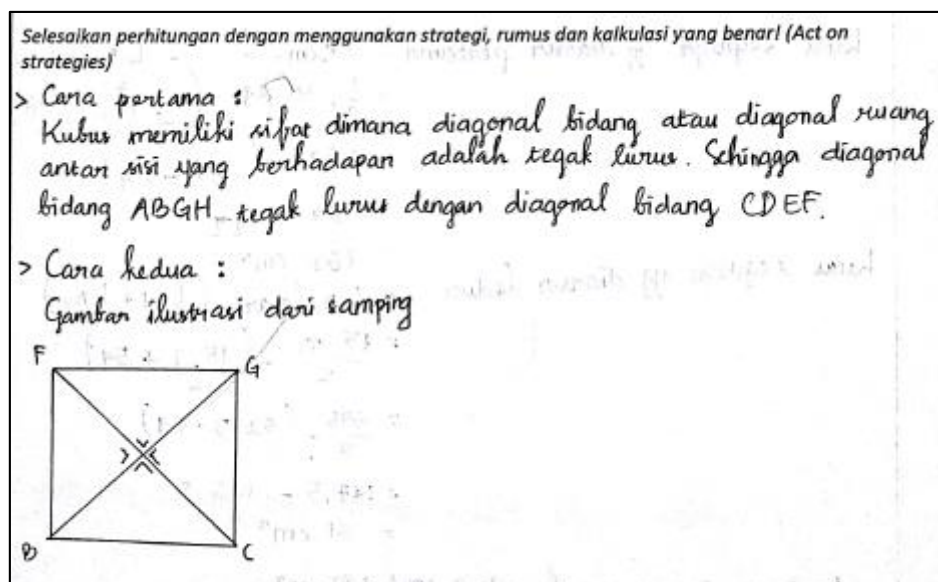 Selesaikan perhitungan dengan menggunakan strategi, rumus dan kalkulasi yang benar! (Act on
strategies)
> Cara pertama :
Kubus memiliki sifat dimana diagonal bidang atau diagonal ruang
antar sisi yang berhadapan adalah tegak lurus. Sehingga diagonal
bidang ABGH tegak lurus dengan diagonal bidang CDEF.
> Cara kedua :
Gambar ilustrasi dari samping
F
G
B
C